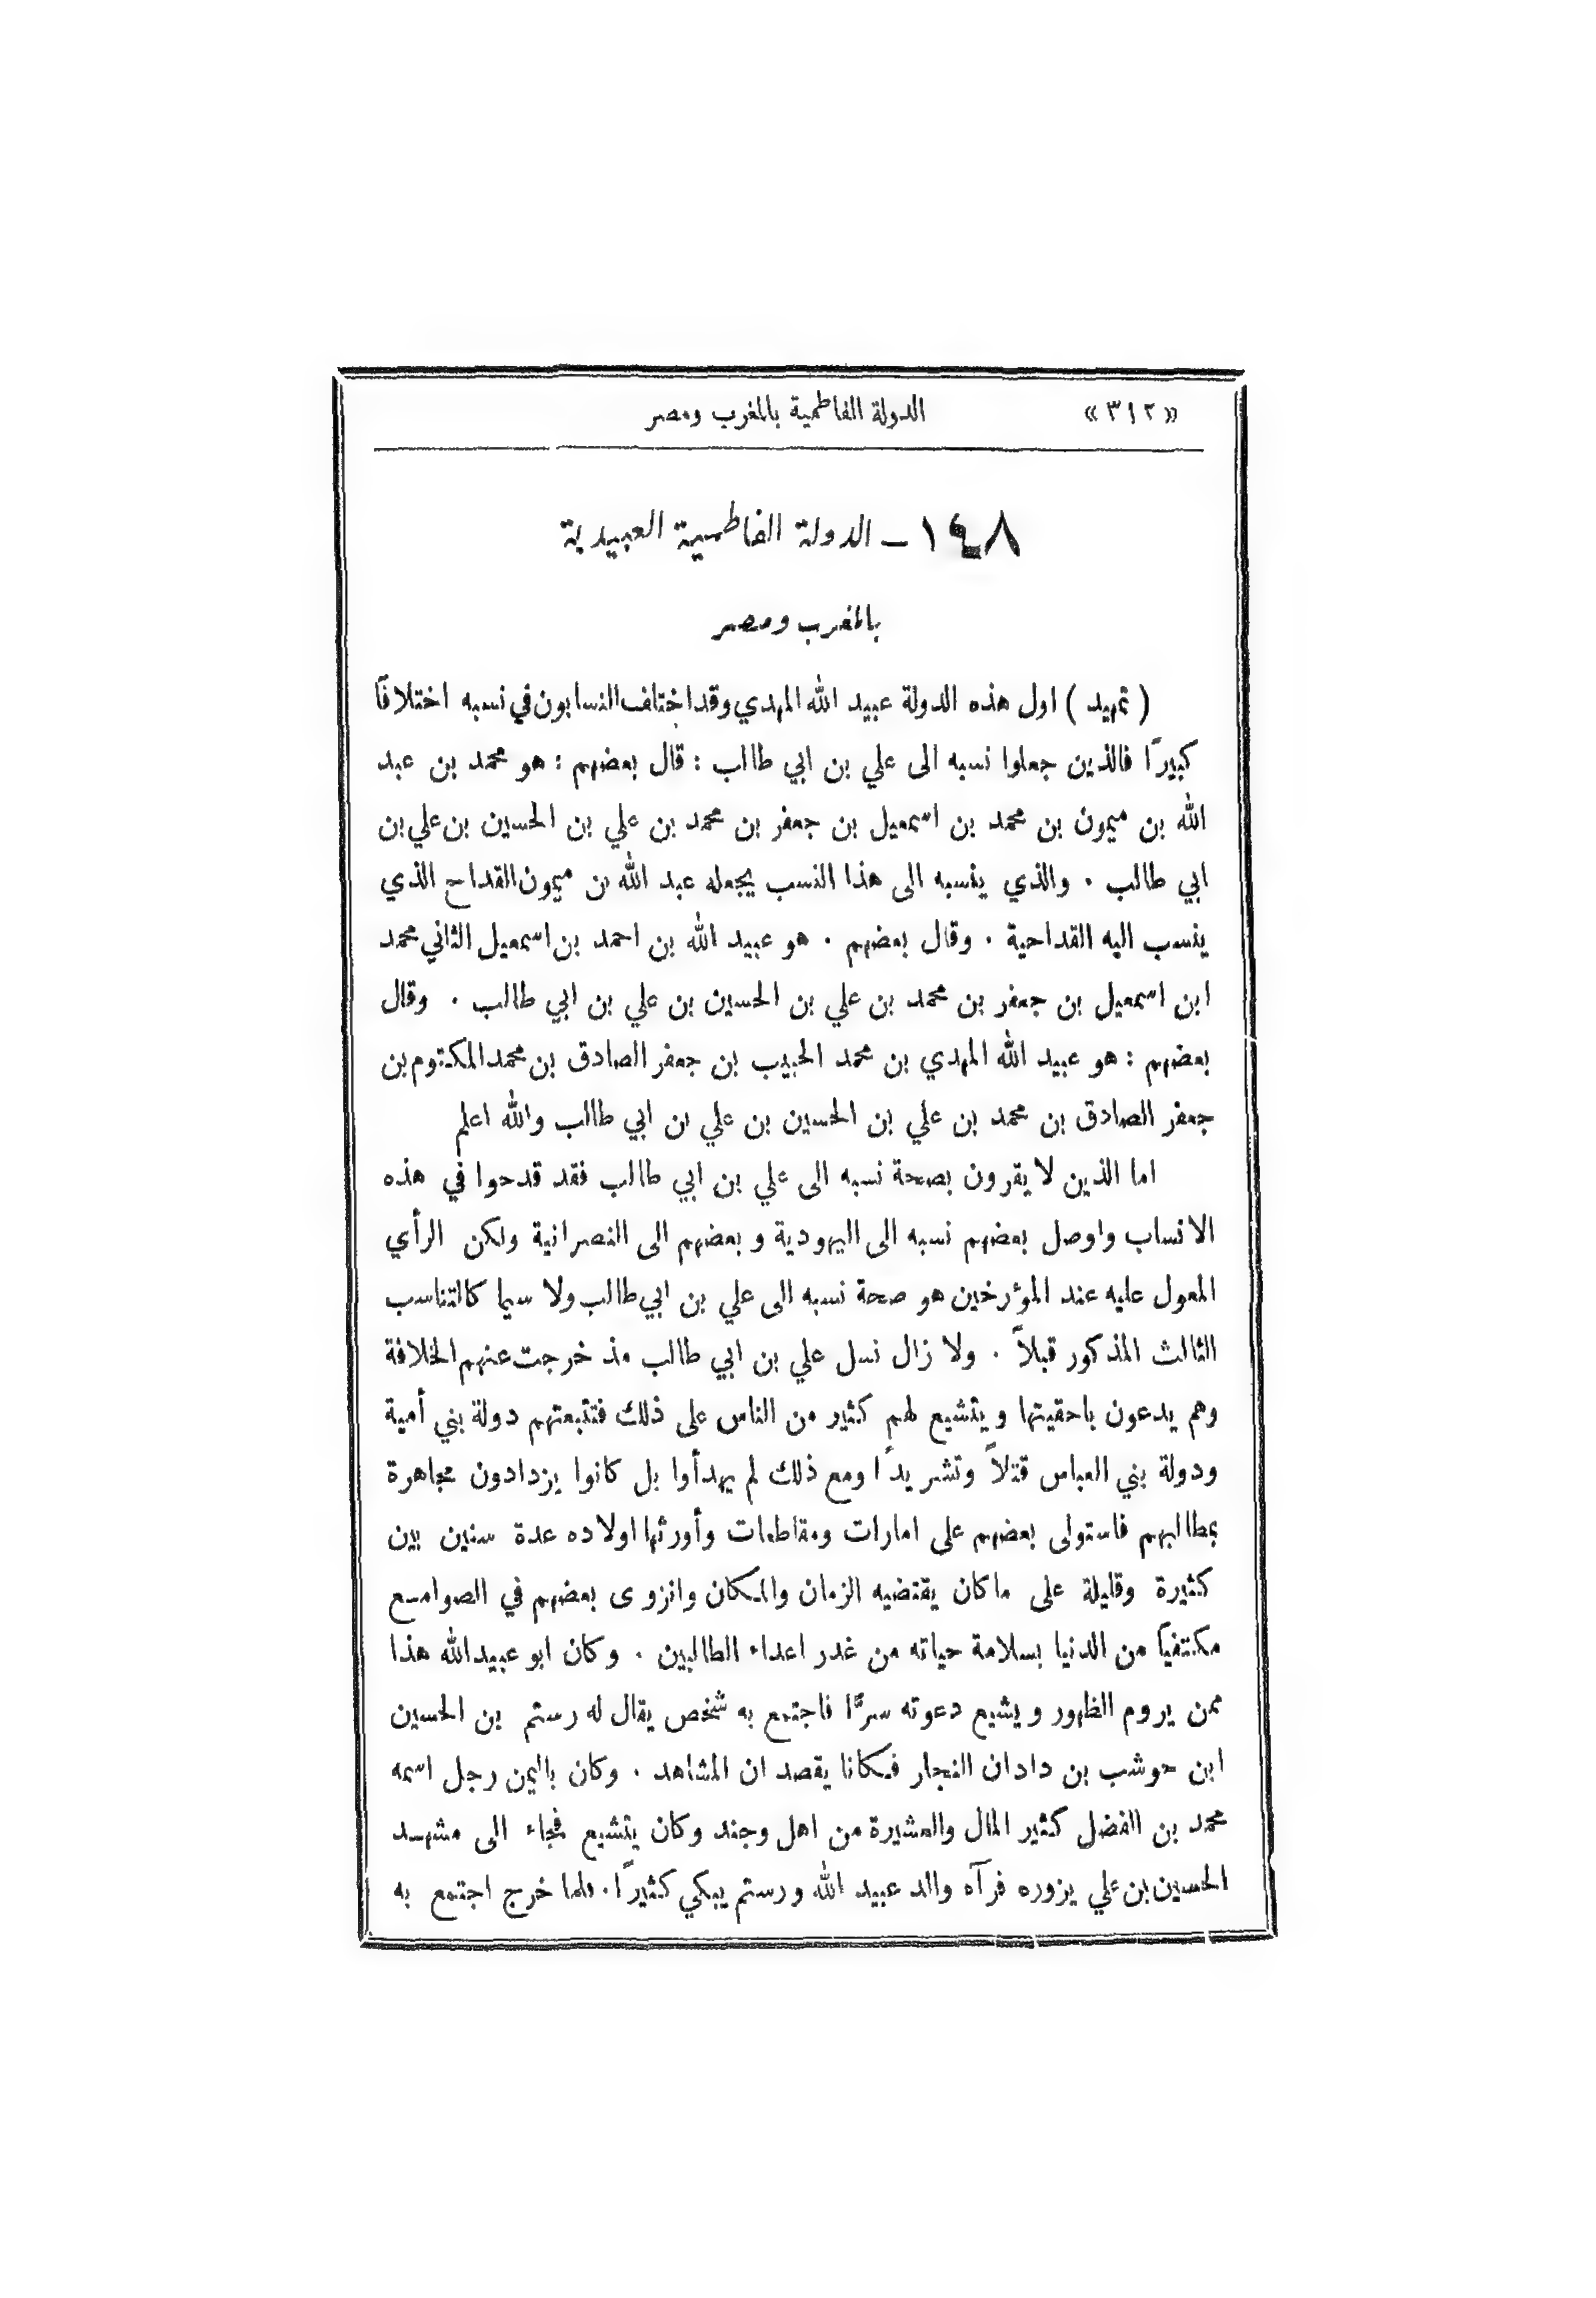 «٣١٢» الدولة الفاطمية بالمغرب ومصر
١٤٨ – الدولة الفاطمية العبيدية
بالمغرب ومصر
( تمهيد ) اول هذه الدولة عبيد الله المهدي وقد اختلف النسابون في نسبه اختلافًا
كبيرًا فالذين جعلوا نسبه الى علي بن ابي طالب : قال بعضهم : هو محمد بن عبد
الله بن ميمون بن محمد بن اسمعيل بن جعفر بن محمد بن علي بن الحسين بن علي بن
ابي طالب . والذي ينسبه الى هذا النسب يجعله عبد الله بن ميمون القداح الذي
ينسب اليه القداحية . وقال بعضهم . هو عبيد الله بن احمد بن اسمعيل الثاني محمد
ابن اسمعيل بن جعفر بن محمد بن علي بن الحسين بن علي بن ابي طالب . وقال
بعضهم : هو عبيد الله المهدي بن محمد الحبيب بن جعفر الصادق بن محمد المكتوم بن
جعفر الصادق بن محمد بن علي بن الحسين بن علي بن ابي طالب والله اعلم
اما الذين لا يقرون بصحة نسبه الى علي بن ابي طالب فقد قدحوا في هذه
الانساب واوصل بعضهم نسبه الى اليهودية وبعضهم الى النصرانية ولكن الرأي
المعول عليه عند المؤرخين هو صحة نسبه الى علي بن ابي طالب ولا سيما كالتناسب
الثالث المذكور قبلاً . ولا زال نسل علي بن ابي طالب مذ خرجت عنهم الخلافة
وهم يدعون باحقيتها ويتشيع لهم كثير من الناس على ذلك فتتبعتهم دولة بني أمية
ودولة بني العباس قتلاً وتشريدًا ومع ذلك لم يهدأوا بل كانوا يزدادون مجاهرة
بمطالبهم فاستولى بعضهم على امارات ومقاطعات وأورثها اولاده عدة سنين بين
كثيرة وقليلة على ماكان يقتضيه الزمان والمكان وانزوى بعضهم في الصوامع
مكتفيًا من الدنيا بسلامة حياته من غدر اعداء الطالبين . وكان ابو عبيد الله هذا
ممن يروم الظهور ويشيع دعوته سرًّا فاجتمع به شخص يقال له رستم بن الحسين
ابن حوشب بن دادان النجار فكانا يقصد ان المشاهد . وكان باليمن رجل اسمه
محمد بن الفضل كثير المال والعشيرة من اهل وجند وكان يتشيع فجاء الى مشهد
الحسين بن علي يزوره فرآه والد عبيد الله ورستم يبكي كثيرًا . فلما خرج اجتمع به